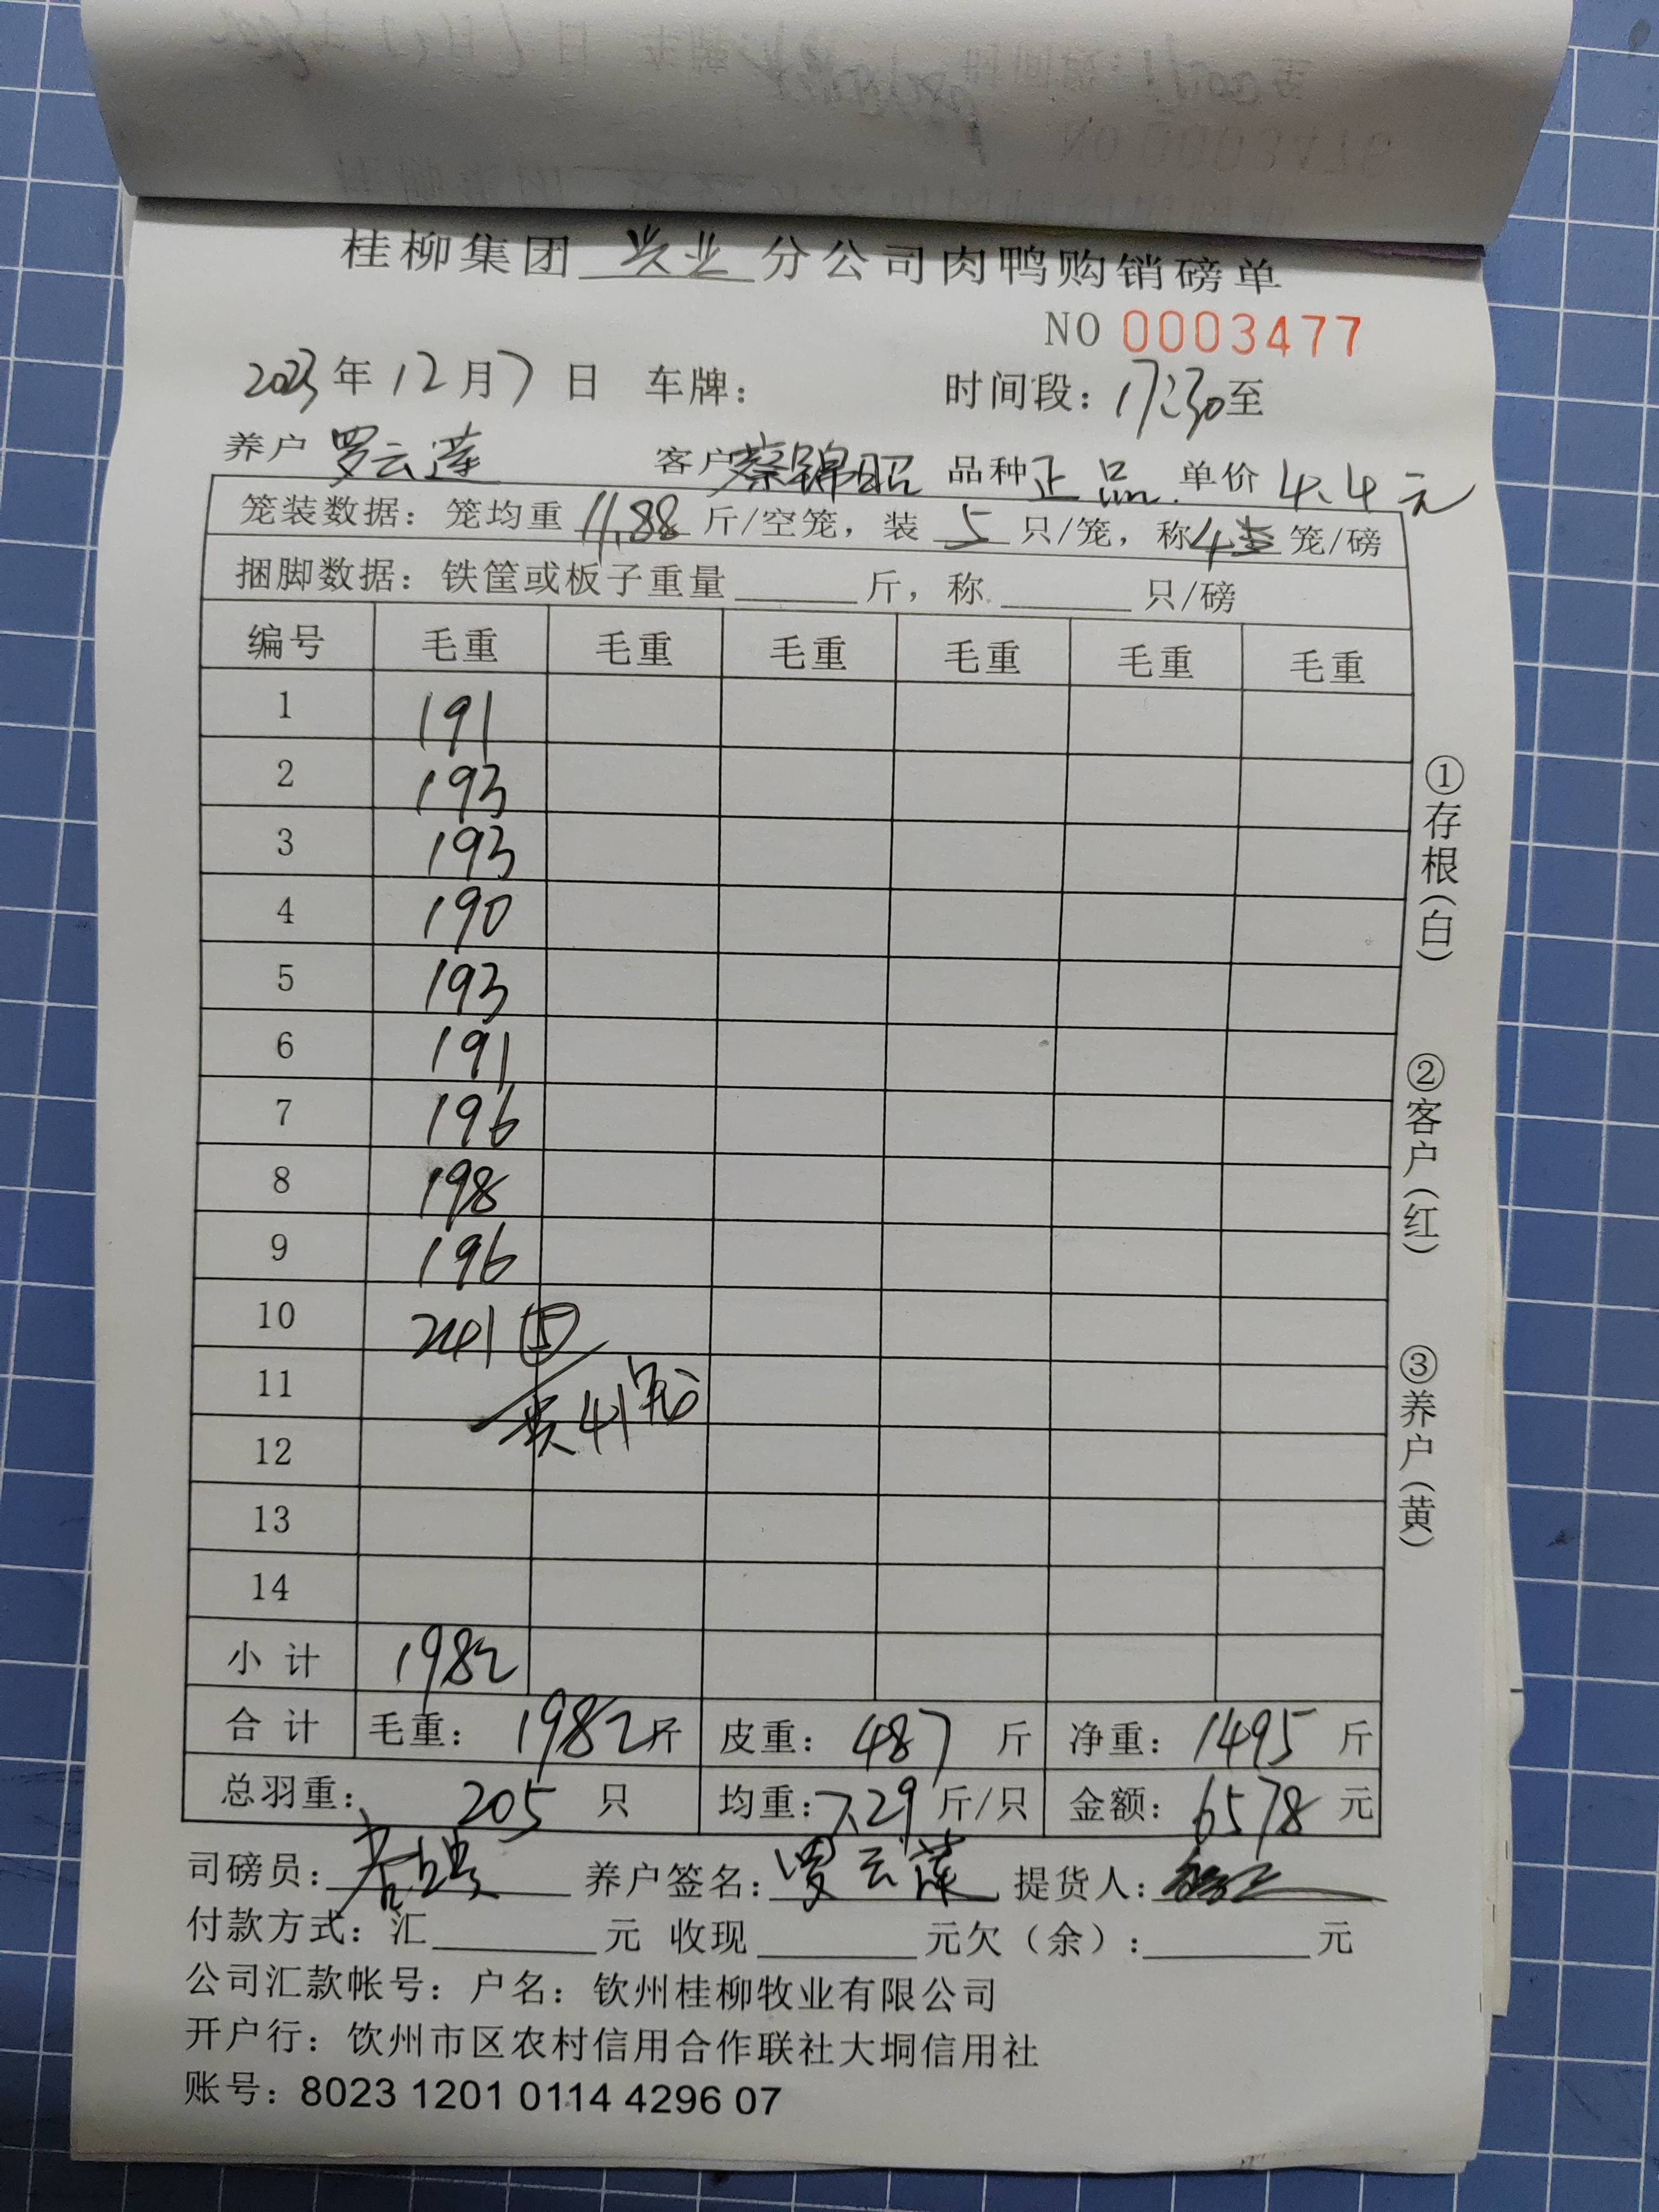 桂柳集团 兴业 分公司肉鸭购销磅单
NO 0003477
2023年12月7日 车牌： 时间段：17:30至
养户 罗云莲 客户 蔡锦昭 品种 正品 单价 4.4元
笼装数据：笼均重 11.88 斤/空笼，装 5 只/笼，称 4 笼/磅
捆脚数据：铁筐或板子重量 斤，称 只/磅
编号 毛重 毛重 毛重 毛重 毛重 毛重
1 191
2 193
3 193
4 190
5 193
6 191
7 196
8 198
9 196
10 241 ⑤
11
共41笼
12
13
14
小计 1982
合计 毛重：1982斤 皮重：487斤 净重：1495斤
总羽重：205只 均重：7.29斤/只 金额：6578元
司磅员： 养户签名：罗云莲 提货人：
付款方式：汇 元 收现 元欠（余）： 元
公司汇款帐号：户名：钦州桂柳牧业有限公司
开户行：饮州市区农村信用合作联社大垌信用社
账号：8023 1201 0114 4296 07
①存根（白）
②客户（红）
③养户（黄）